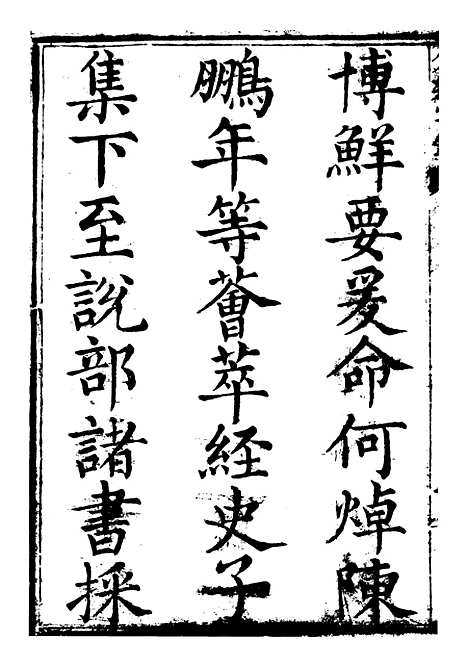 博鮮要爰命何焯陳
鵬年等薈萃經史子
集下至說部諸書採